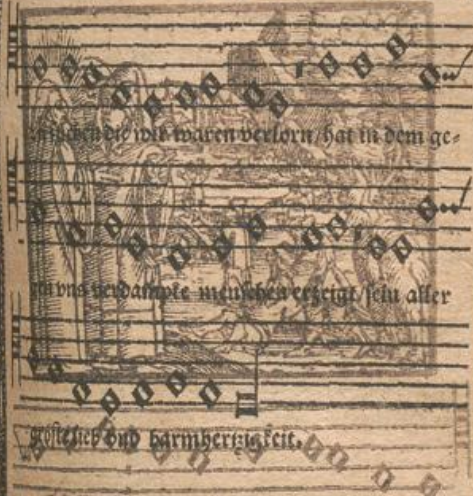 zusuchen die wir waren verlorn/ hat in dem ge⸗
gen vns verdampte menschen erzeigt/ sein aller
gröste lieb vnd barmhertzigkeit.